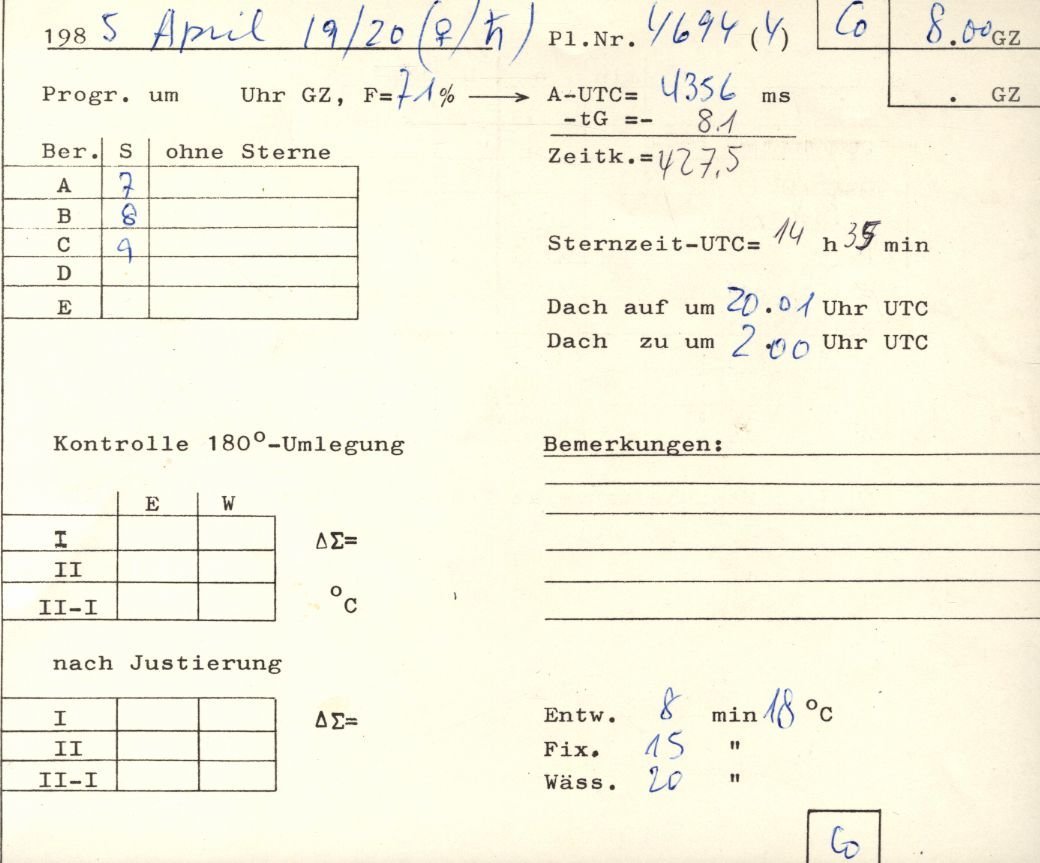 1985 April 19/20 (♀/♄) Pl.Nr. 4694 (4) Co 8.00 GZ
Progr. um Uhr GZ, F=71% → A-UTC= 4356 ms . GZ
-tG =- 8.1
Ber. S ohne Sterne Zeitk.=427,5
A 7
B 8
C 9 Sternzeit-UTC= 14 h 35 min
D
E Dach auf um 20.01 Uhr UTC
Dach zu um 2.00 Uhr UTC
Kontrolle 180°-Umlegung Bemerkungen:
E W
I ΔΣ=
II
II-I °C
nach Justierung
I ΔΣ= Entw. 8 min 18 °C
II Fix. 15 "
II-I Wäss. 20 "
Co